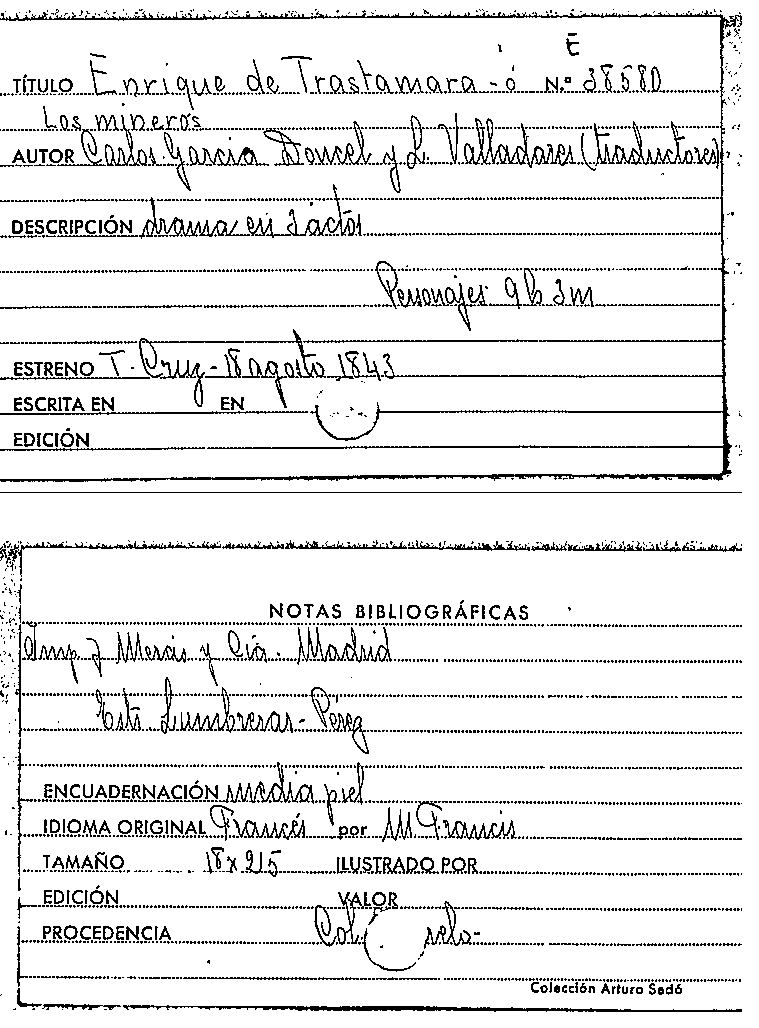 E
TÍTULO Enrique de Trastamara - ó N.º 38580
Los mineros
AUTOR Carlos García Doncel y L. Valladares (traductores)
DESCRIPCIÓN drama en 3 actos
Personajes 9 h 3 m
ESTRENO T. Cruz - 18 agosto 1843
ESCRITA EN EN
EDICIÓN
NOTAS BIBLIOGRÁFICAS
Imp J Merás y Cía. Madrid
Lumbreras - Pérez
ENCUADERNACIÓN media piel
IDIOMA ORIGINAL Francés por M Francis
TAMAÑO 18 x 9'5 ILUSTRADO POR
EDICIÓN VALOR
PROCEDENCIA
Colección Arturo Sedó